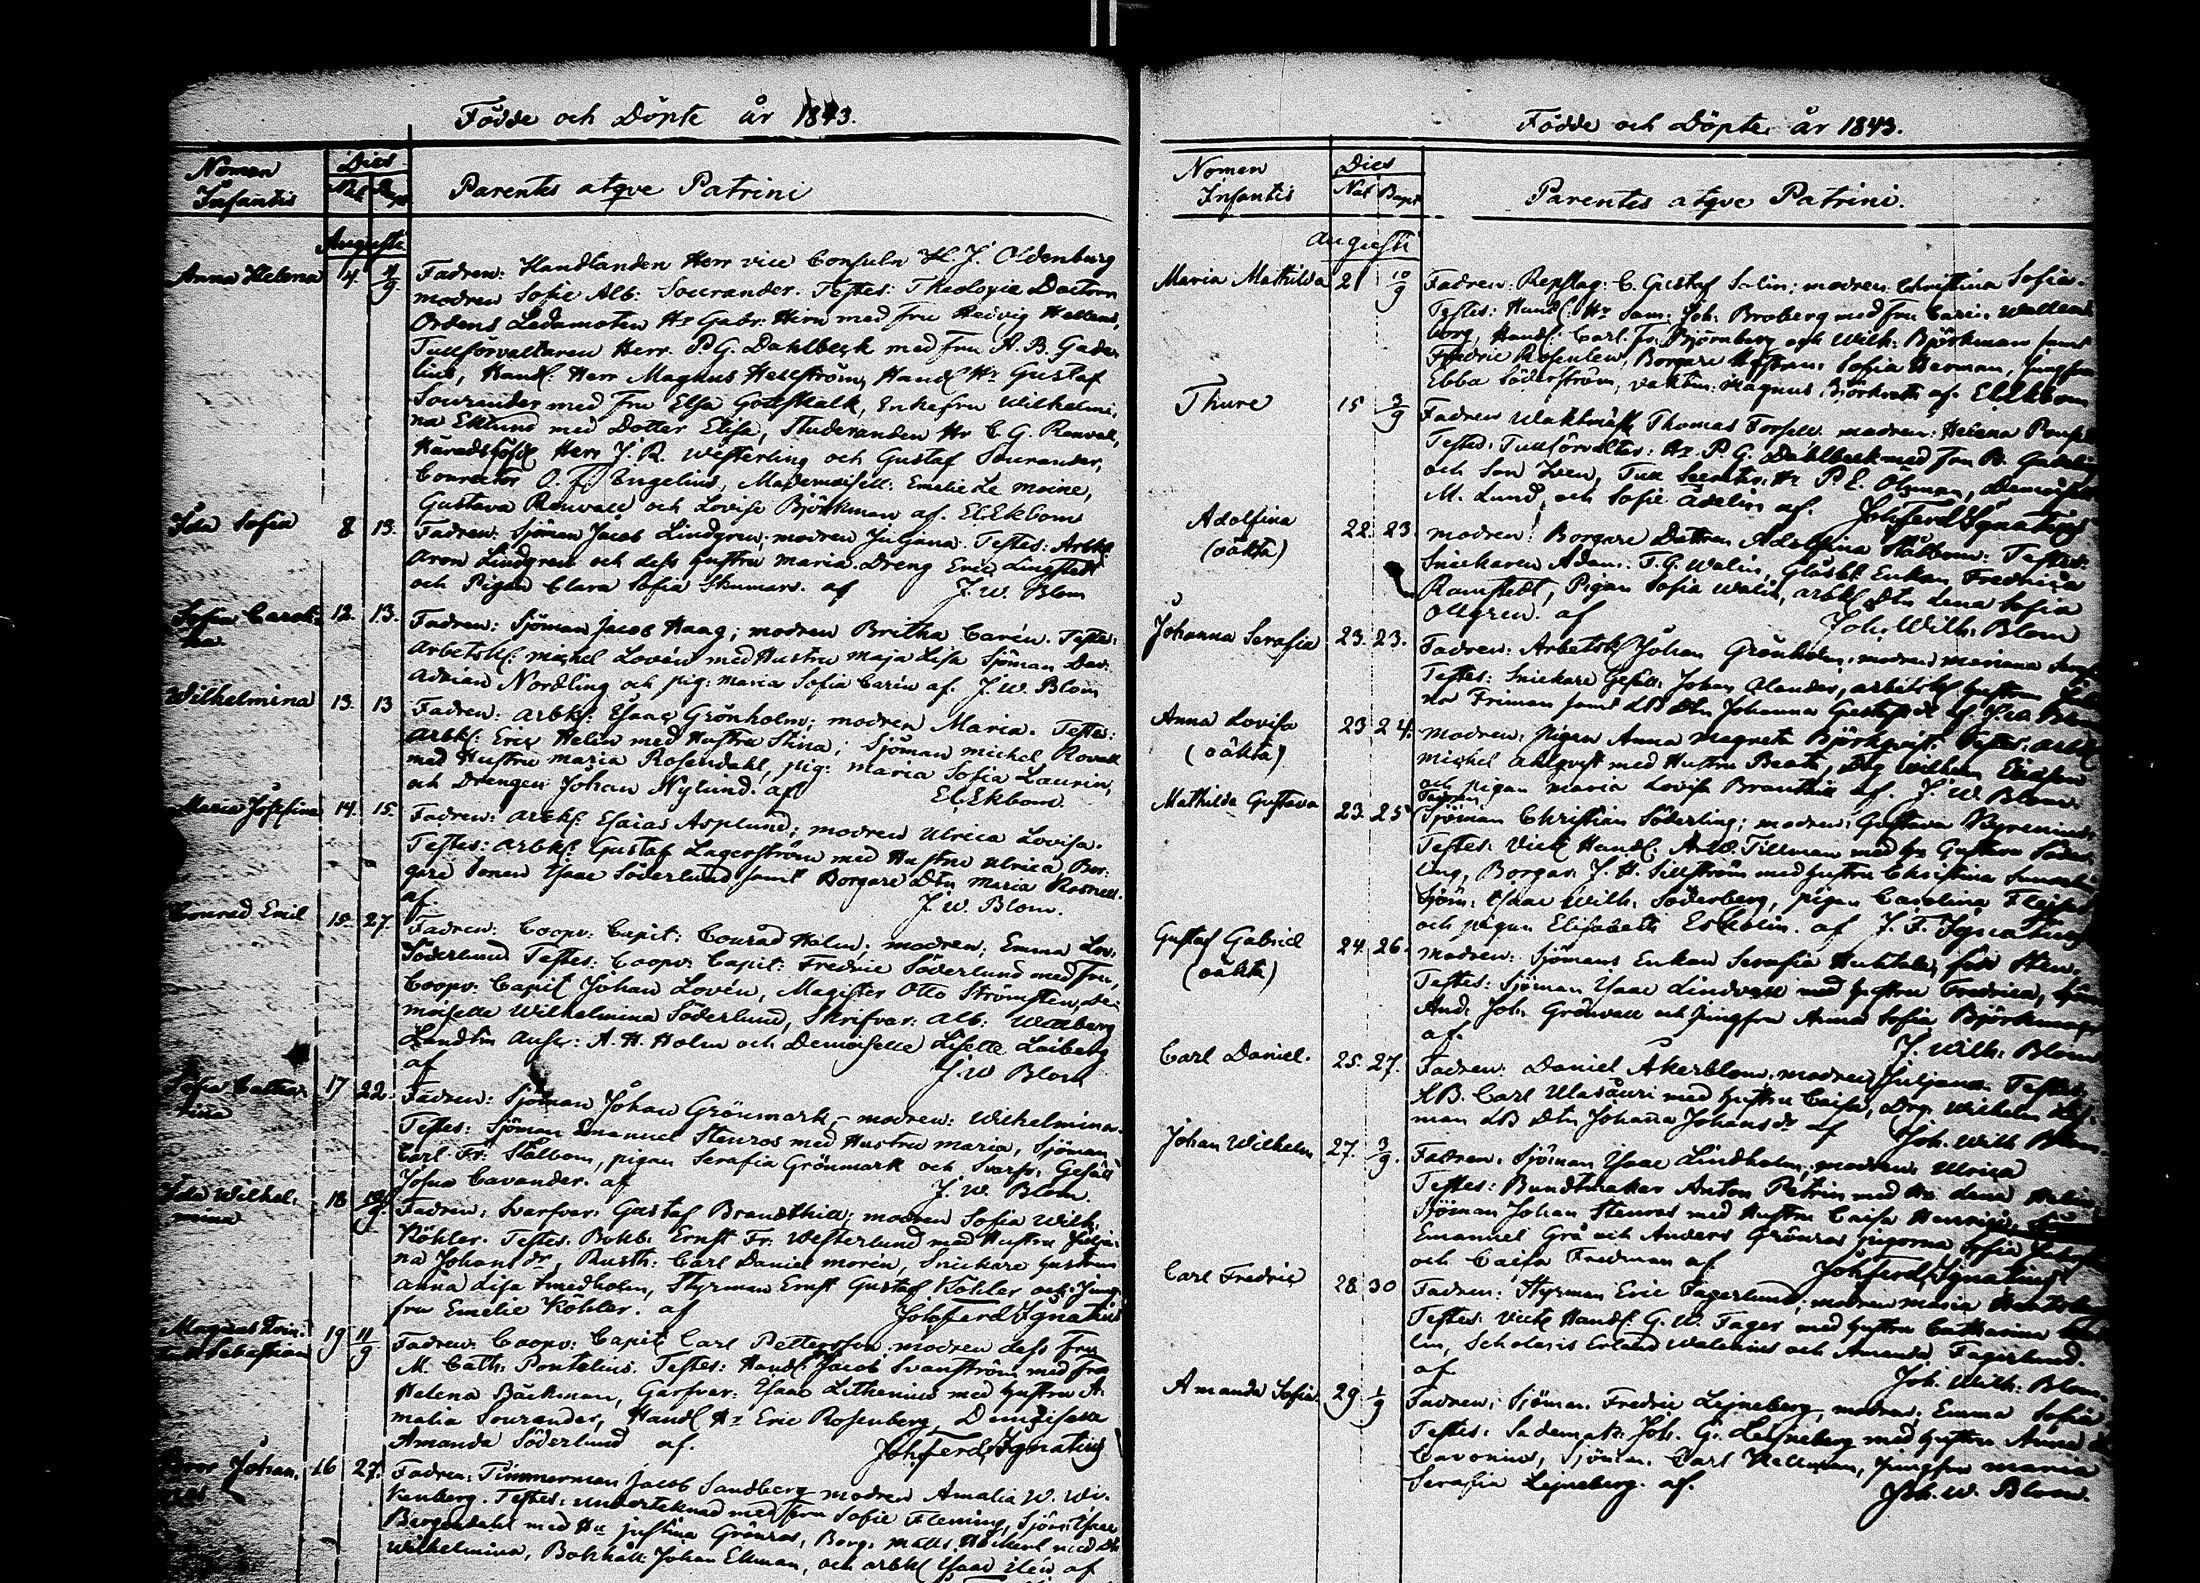 Födde och Döpte år 1843.
Nomen Infantis
Dies
Nat Bapt
Parentes atqve Patrini
Augusti
Anna Helena 4. 4/9 Fadren: Handlanden Herr vice Consuln H. J. Oldenburg
modren Sofie Alb: Sourander. Testes: Theologiæ Doctorn
Ordens Ledamoten Hr Gabr: Hirn med fru Hedvig
Tullförvaltaren Herr P. G. Dahlbeck med fru A. B. Gade-
lius, Handl: Herr Magnus Hellström, Handl Hr Gustaf
Sourander med fru Elsa Gottskalk, Enkefru Wilhelmi-
na Eklund med Dotter Elisa, Studeranden Hr C. G. Renvall,
Häradshöfd Herr J. R. Westerling och Gustaf Sourander,
Conrector O. F. Engelius, Mademoisell: Emelie Le moine,
Gustava Renvall och Lovisa Björkman af. El. Ekbom
Ida Sofia 8 13. Fadren: Sjöman Jacob Lindgren; modren Juljana. Testes: Arbk:
Aron Lindgren och dess hustru Maria. Dreng Eric Lingstedt
och Pigan Clara Sofia Skuman. af J. W. Blom
Sofia Caroli-
na. 12. 13. Fadren: Sjöman Jacob Haag; modren Britha Carén. Testes:
Arbetsk: Michel Lovén med Hustru Maja Lisa Sjöman Dav:
Adrian Nordling och pig: Maria Sofia Carén af. J. W. Blom
Wilhelmina 13. 13 Fadren: Arbk: Esaac Grönholm; modren Maria. Testes:
Arbk: Eric Helin med Hustru Stina; Sjöman Michel Rovall
med Hustru Maria Rosendahl, pig: Maria Sofia Laurin,
och Drengen Johan Nylund. af El. Ekbom.
Maria Josefina 14. 15. Fadren: Arbk: Esaias Asplund; modren Ulrica Lovisa.
Testes: Arbk: Gustaf Lagerström med Hustru Ulrica, Bor-
gare Sonen Isaac Söderlund samt Borgare Dtn Maria Rosnell.
af. J. W. Blom.
Conrad Emil 15. 27. Fadren: Coopv: Capit: Conrad Holm; modren; Emma Lov:
Söderlund Testes: Coopv: Capit: Fredric Söderlund med fru,
Coopv: Capit Johan Lovén, Magister Otto Strömsten, De-
moiselle Wilhelmina Söderlund, Skrifvar: Alb: Wallberg
A. H. Holm och Demoiselle Lisette Loiberg
af J. W Blom
Sofia Catha-
rina 17 22. Fadren: Sjöman Johan Grönmark, modren: Wilhelmina.
Testes: Sjöman Emanuel Stenros med Hustru Maria, Sjöman
Carl Fr: Stålbom, pigan Serafia Grönmark och Svarfv: Gesäll
Josua Cavander. af J. W. Blom.
Ida Wilhel-
mina 18 10/9 Fadren: Svarfvar: Gustaf Brandthill; modren Sofia Wilh:
Köhler. Testes: Bokb: Ernst Fr: Westerlund med Hustru Julja-
na Johansdr, Rusth: Carl Daniel Morén, Snickare hustrun
Anna Lisa Smedholm, Styrman Ernst Gustaf Köhler och Jung-
fru Emelie Köhler. af Joh ferd Ignatius
Magnus
Sebastian 19 11/9 Fadren: Coopv: Capit Carl Pettersson modren dess fru
M. Cath: Pontelius. Testes: Handl: Jacob Svanström med fru
Helena Bäckman, Garfvar: Isaac Lithenius med hustru A-
malia Sourander, Handl Hr Eric Rosenberg, Demoiselle
Amanda Söderlund af. Joh. ferd. Ignatius
Johan. 16 27. Fadren: Timmerman Jacob Sandberg modren Amalia W. Wi-
kenberg. Testes: Undertecknad med fru Sofie Fleming, Sjöm: Isaac
Bergendahl med Hu Justina Grönros, Borg: med Dr
Wilhelmina, Bokhåll: Johan Ekman, och arbk Isaac af
Födde och Döpte år 1843.
Nomen Infantis
Dies
Nat Bapt
Parentes atqve Patrini.
Augusti
Maria Mathilda 21 10/9 Fadren: Repslag: C. Gustaf Salin; modren Christina Sofia.
Testes: Handl: Hr Sam: Joh: Broberg med fru Carin Wallen-
borg, Handl: Carl Fr: Björnberg och Wilh: Björkman samt
Fredric Rosenlew, Borgare Hustrun Sofia Herman, Jungfru
Ebba Söderström, vaktm: Magnus af. El. Ekbom
Thure 15 3/9 Fadren Waktmäst Thomas Forsell modren: Helena
Testes: Tullförvaltar: Hr P G. Dahlbeck med fru B. Gadelius
och Son Sven, Tull Secretr: Hr P. E. Öhman, Demoiselle
M. Lund och Sofie Ådelin af. Joh ferd Ignatius
Adolfina
(oäkta) 22. 23. modren: Borgare Dottren Adolfina Stålbom: Testes:
Snickaren Adam. T. G. Walin, Glasbl: Enkan Fredrica
Ramstedt, Pigan Sofia Walin, arbk: Dtn Lena Sofia
Ollgren. af Joh. Wilh. Blom
Johanna Serafia 23. 23. Fadren: Arbetsk Johan Grönholm. modren Mariana
Testes: Snickare Gesäll: Johan Alander, arbetsk hustrun
na Friman samt LB Dtn Johanna af. J. W. Blom
Anna Lovisa
(oäkta) 23 24. modren; pigan Anna Magreta Björkqvist. Testes: arbk
Michel Ahlqvist med Hustru Beata, Drg Wilhelm
och pigan Maria Lovisa Brandthill af. J W. Blom.
Mathilda Gustava 23. 25 Fadren
Sjöman Christian Söderling; modren: Gustava Byrenius.
Testes: Victl Handl: A. W. Tillman med hu Gustava Söder-
ling, Borgar: J. H. Sillström med hustru Christina
Sjöm: Isaac Wilh: Söderberg, pigan Carolina
och pigan Elisabeth Eskolin. af J. F. Ignatius
Gustaf Gabriel
(oäkta) 24. 26. modren: Sjömans Enkan Serafia
Testes: Sjöman Isaac Lindvall med hustru Fredrica,
And: Joh: Grönvall och Jungfru Anna Sofia Björkman
af. J. Wilh: Blom
Carl Daniel. 25. 27. Fadren: Daniel Åkerblom. modren Juljana. Testes:
LB. Carl Ulasåuri med hustru Caisa, Drg: Wilhelm
man LB Dtn Johanna Johansdr af Joh. Wilh Blom.
Johan Wilhelm 27. 3/9. Fadren: Sjöman Isaac Lindholm, modren Ulrica
Testes: Bundtmaker Anton Petrin med Hu Lena Helin,
Sjöman Johan Stenros med Hustru Caisa
Emanuel Grå och Anders Grönros pigorna Sofia
och Caisa Fredman af Joh ferd Ignatius
Carl Fredric 28. 30 Fadren: Styrman Eric Fagerlund; modren Maria
Testes: Victl Handl: G. W. Fager med hustru Catharina
lin, Scholaris Erland Walenius och Amanda Fagerlund.
af Joh. Wilh: Blom.
Amanda Sofia. 29 1/9 Fadren: Sjöman Fredric Lejneberg, modren; Emma Sofia
Testes: Sadelmak: Joh. G. Lejneberg med hustru Anna
Cavonius, Sjöman Carl Hellman, Jungfru Maria
Serafia Lejneberg. af. Joh. W. Blom.